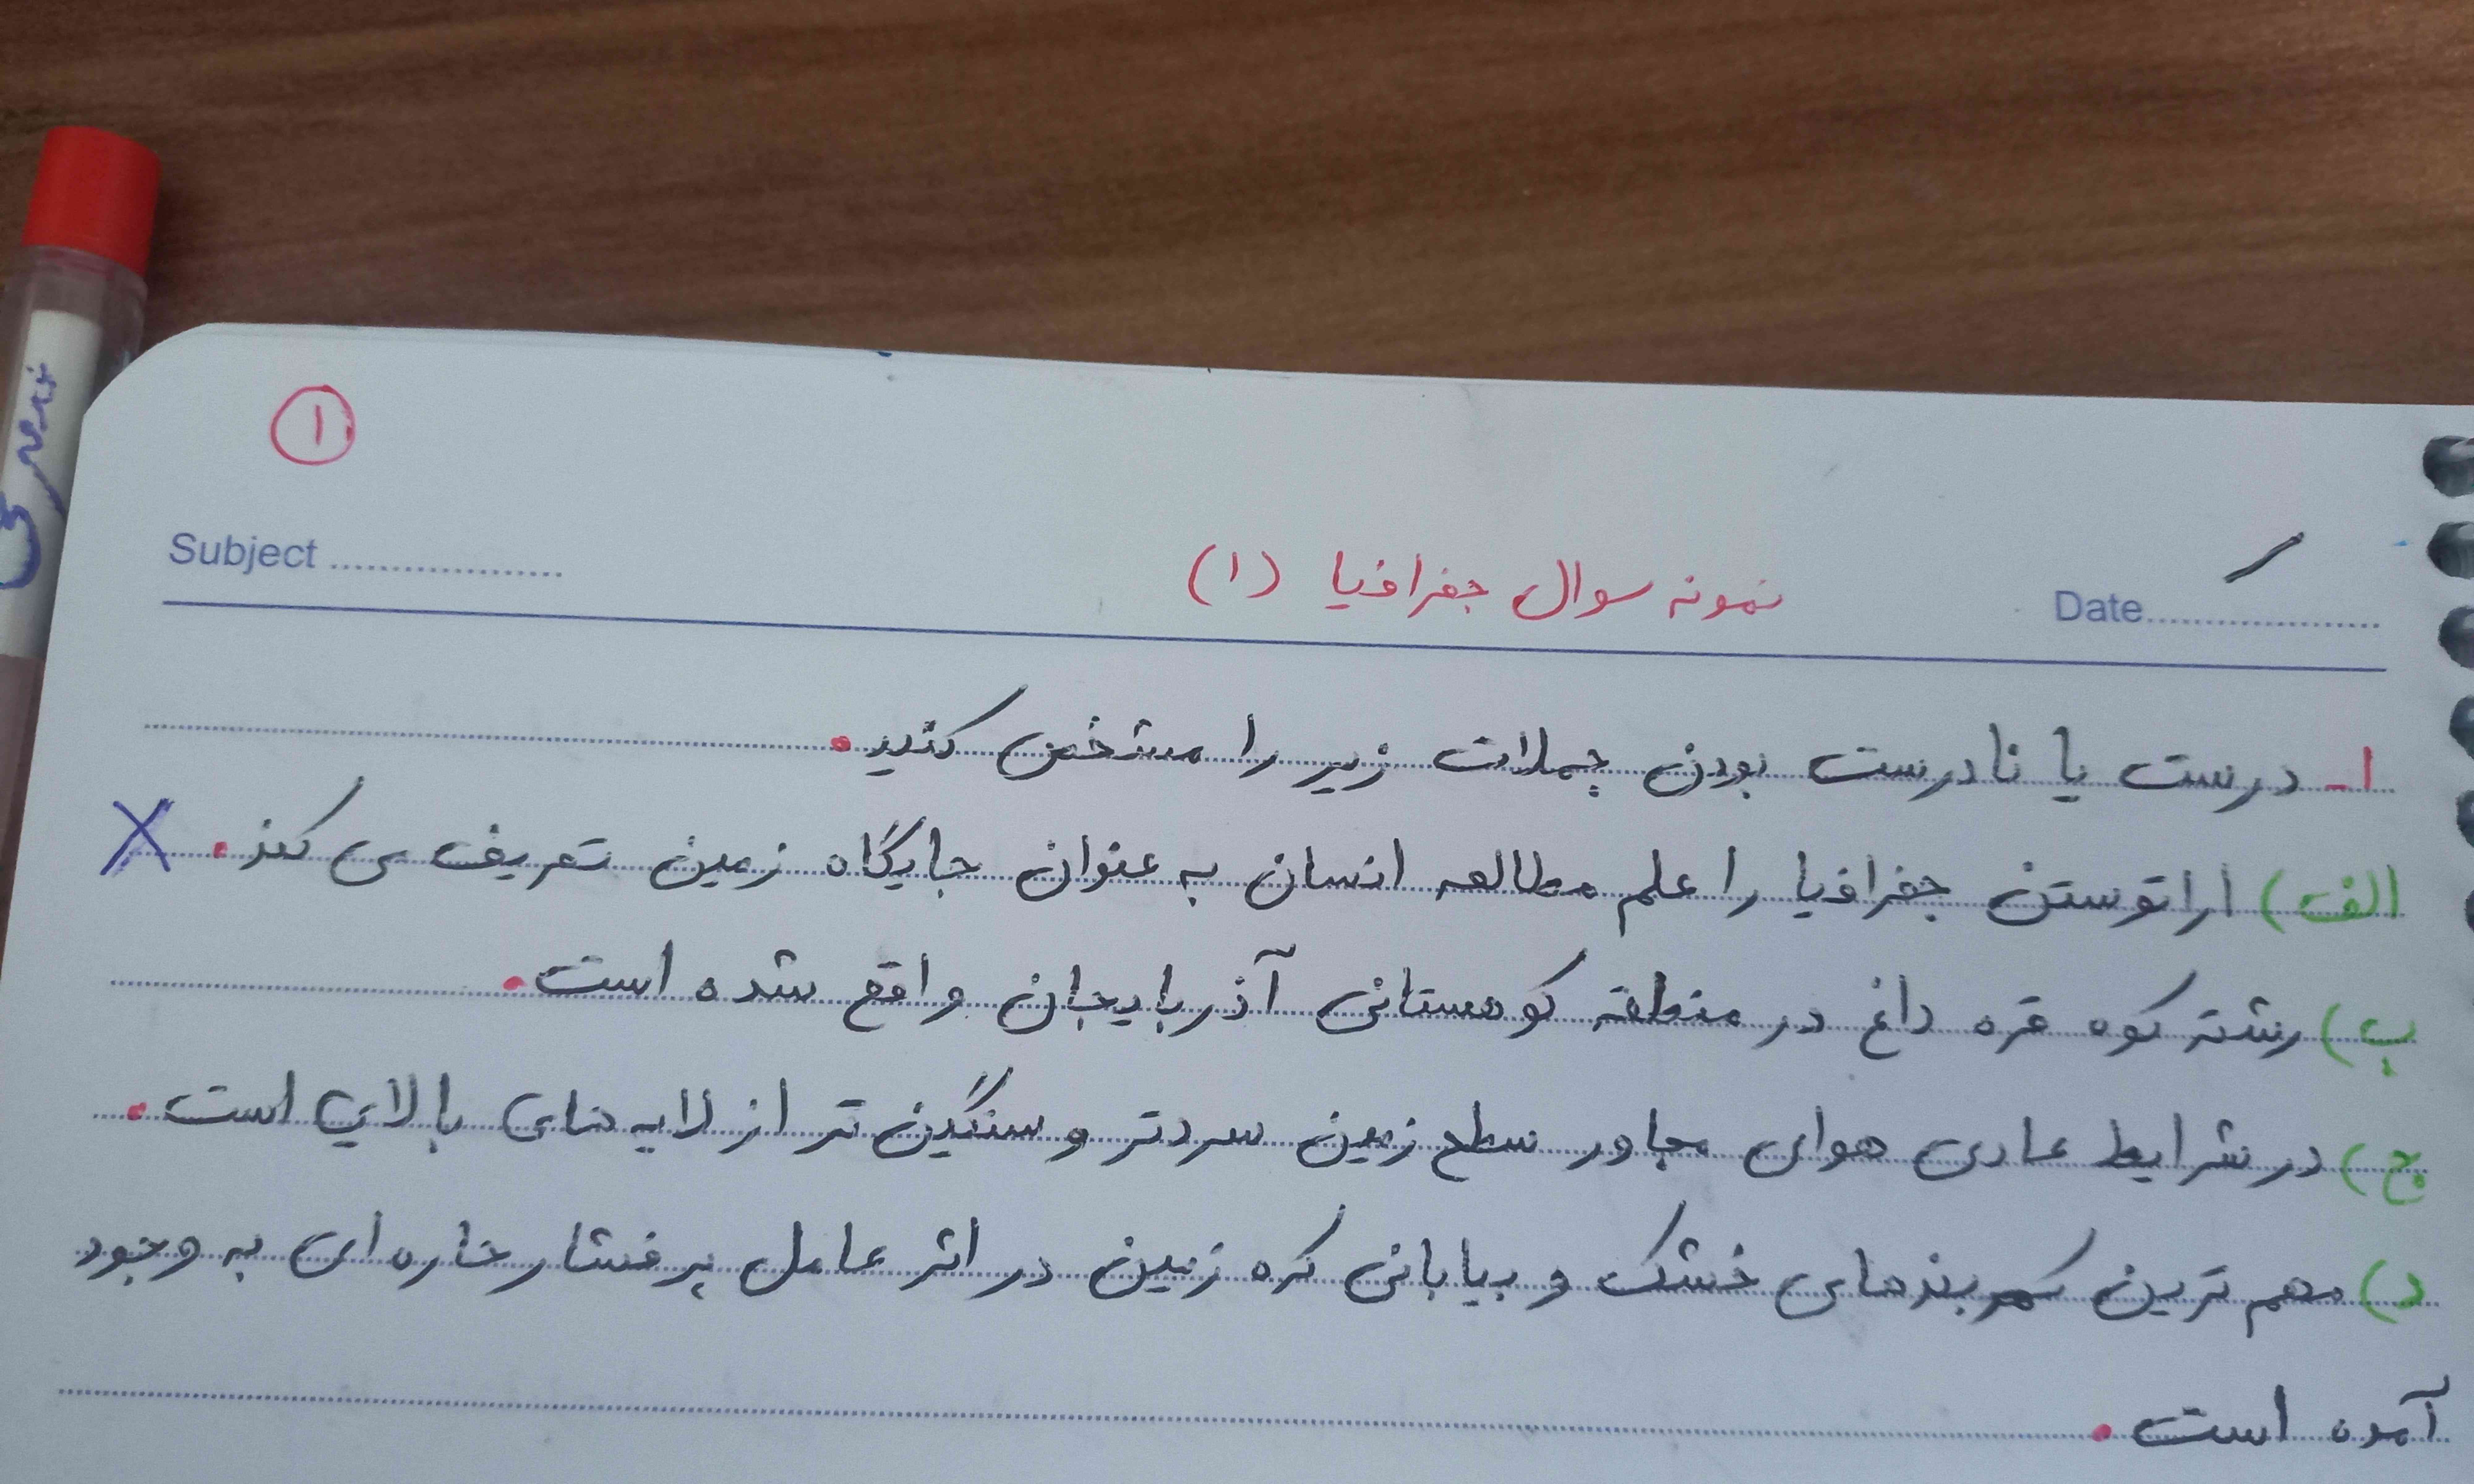 ۱
Subject
نمونه سوال جغرافیا (۱)
Date
۱- درست یا نادرست بودن جملات زیر را مشخص کنید.
الف) اراتوستن جغرافیا را علم مطالعه انسان به عنوان جایگاه زمین تعریف می کند. X
ب) رشته کوه قره داغ در منطقه کوهستانی آذربایجان واقع شده است.
ج) در شرایط عادی هوای مجاور سطح زمین سردتر و سنگین تر از لایه های بالایی است.
د) مهم ترین کمربندهای خشک و بیابانی کره زمین در اثر عامل پرفشار حاره ای به وجود
آمده است.